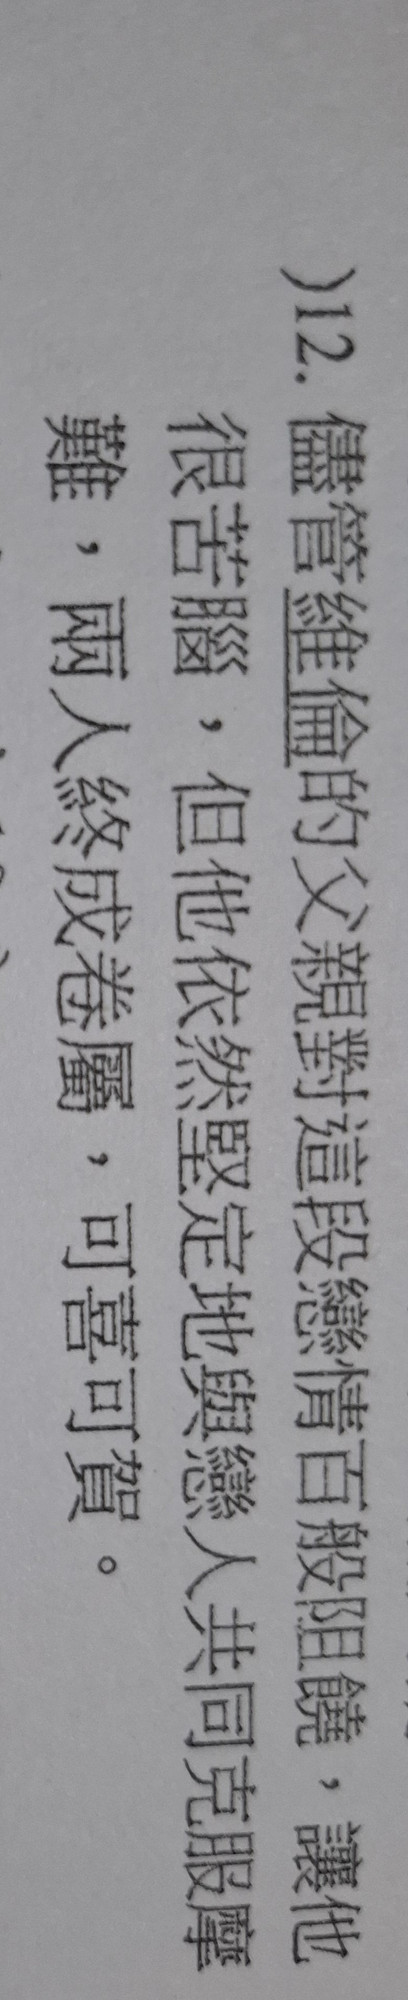 )12. 儘管維倫的父親對這段戀情百般阻饒，讓他
很苦腦，但他依然堅定地與戀人共同克服摩
難，兩人終成卷屬，可喜可賀。